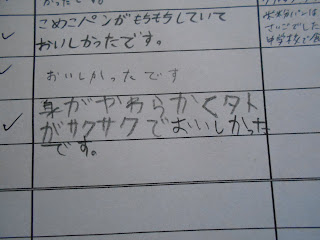 こめこパンがもちもちしていて
おいしかったです。
おいしかったです
身がやわらかく外
がサクサクでおいしかった
です。
パンは
さいごでした
中学校で